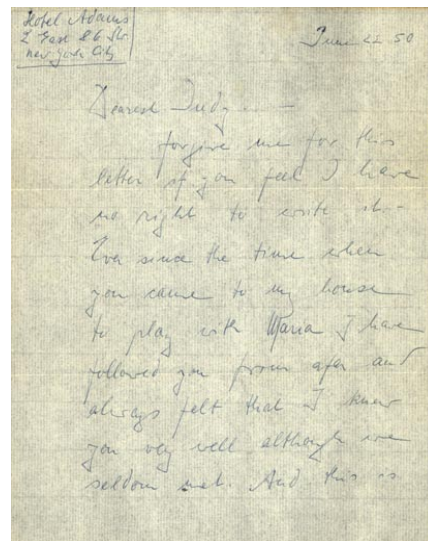 Hotel Adams
2 East 86 Str
new york City
June 22 50
Dearest Judy
forgive me for this
letter if you feel I have
no right to write it -
Ever since the time when
you came to my house
to play with Maria I have
followed you from afar and
always felt that I knew
you very well although we
seldom met. And this is